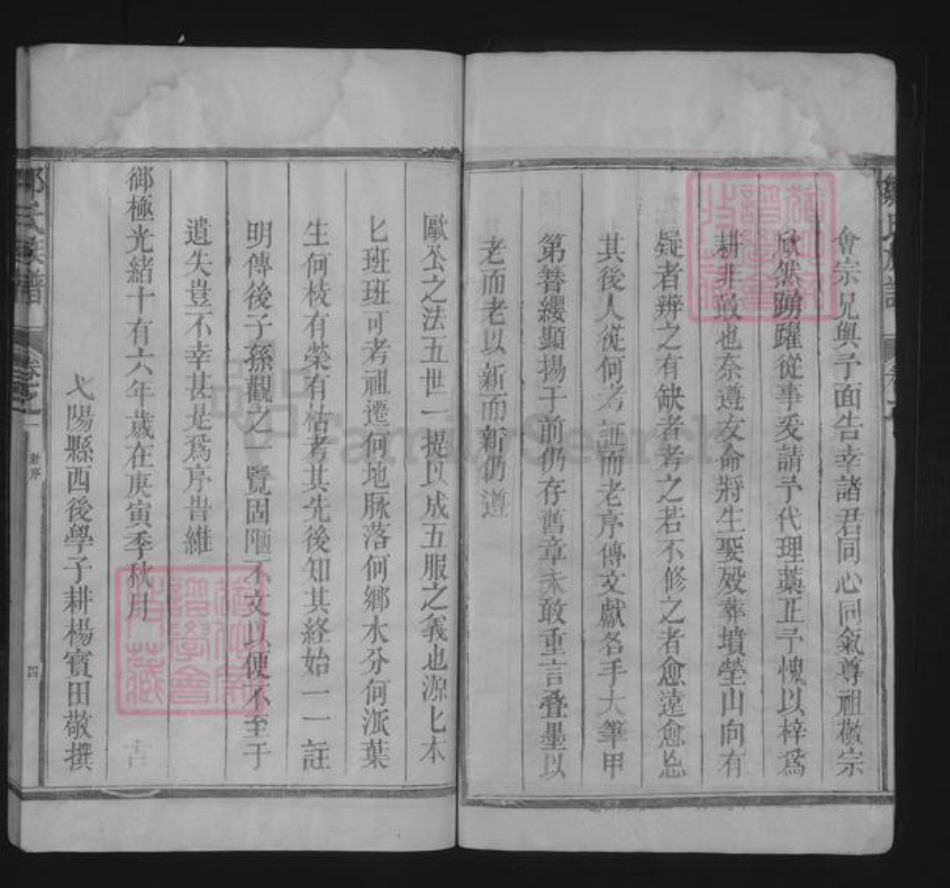 會宗兄與予面告幸諸君同心同氣尊祖敬宗
欣然踴躍從事爰請予代理藁正予愧以梓爲
耕非敢也奈遵友命將生娶殁葬墳塋山向有
疑者辨之有缺者考之若不修之者愈遠愈忘
其後人從何考証而老序傳文獻各手大筆甲
第簪纓顯揚于前仍存舊章未敢重言叠墨以
老而老以新而新仍遵
歐公之法五世一提以成五服之義也源匕本
匕班班可考祖遷何地脉落何鄉水分何派葉
生何枝有榮有枯考其先後知其終始一一註
明傳後子孫觀之一覽固陋不文以便不至于
遺失豈不幸甚是爲序旹維
御極光緒十有六年歲在庚寅季秋月 吉
弋陽縣西後學子耕楊寳田敬撰
鄒氏族譜 卷之一 新序 四
FamilySearch